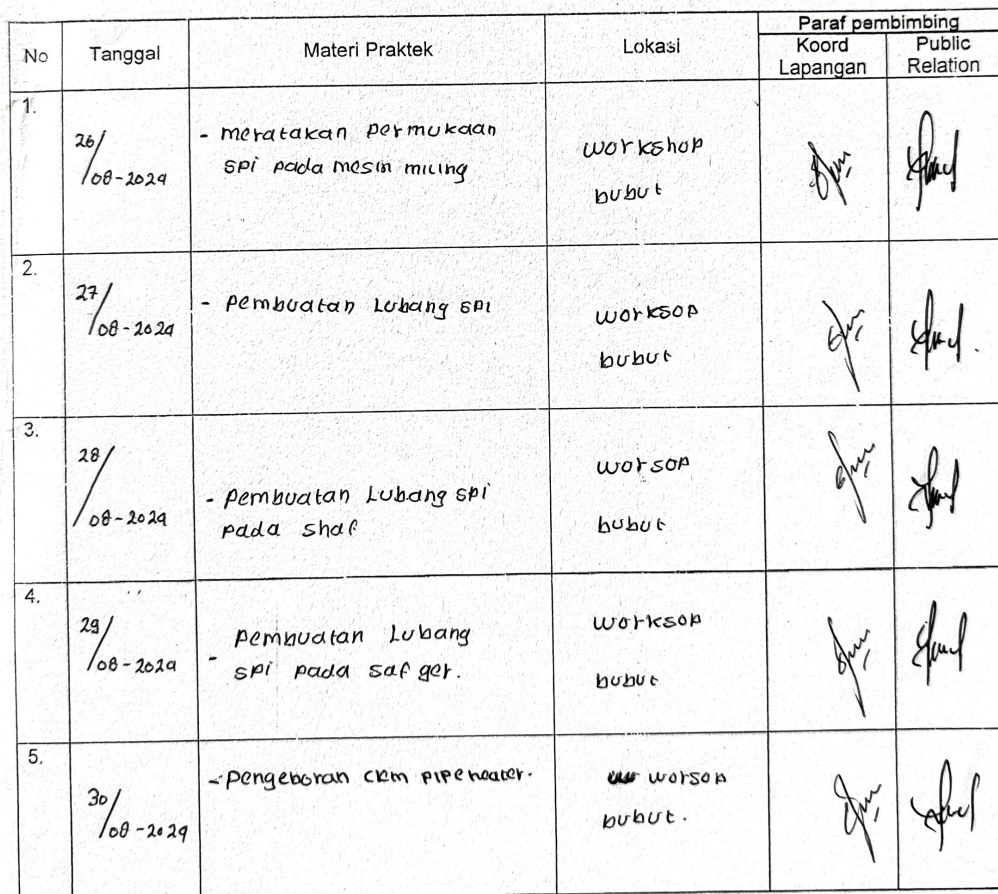 No Tanggal Materi Praktek Lokasi Paraf pembimbing
Koord Lapangan Public Relation
1.
26/08-2024
- meratakan permukaan
spi pada mesin miling
workshop
bubut
2.
27/08-2024
- Pembuatan Lubang spi
worksop
bubut
3.
28/08-2024
- Pembuatan Lubang spi
pada shaf
worsop
bubut
4.
29/08-2024
- Pembuatan Lubang
spi pada saf ger.
worksop
bubut
5.
30/08-2024
- Pengeboran ckm pipe heater.
worsop
bubut.